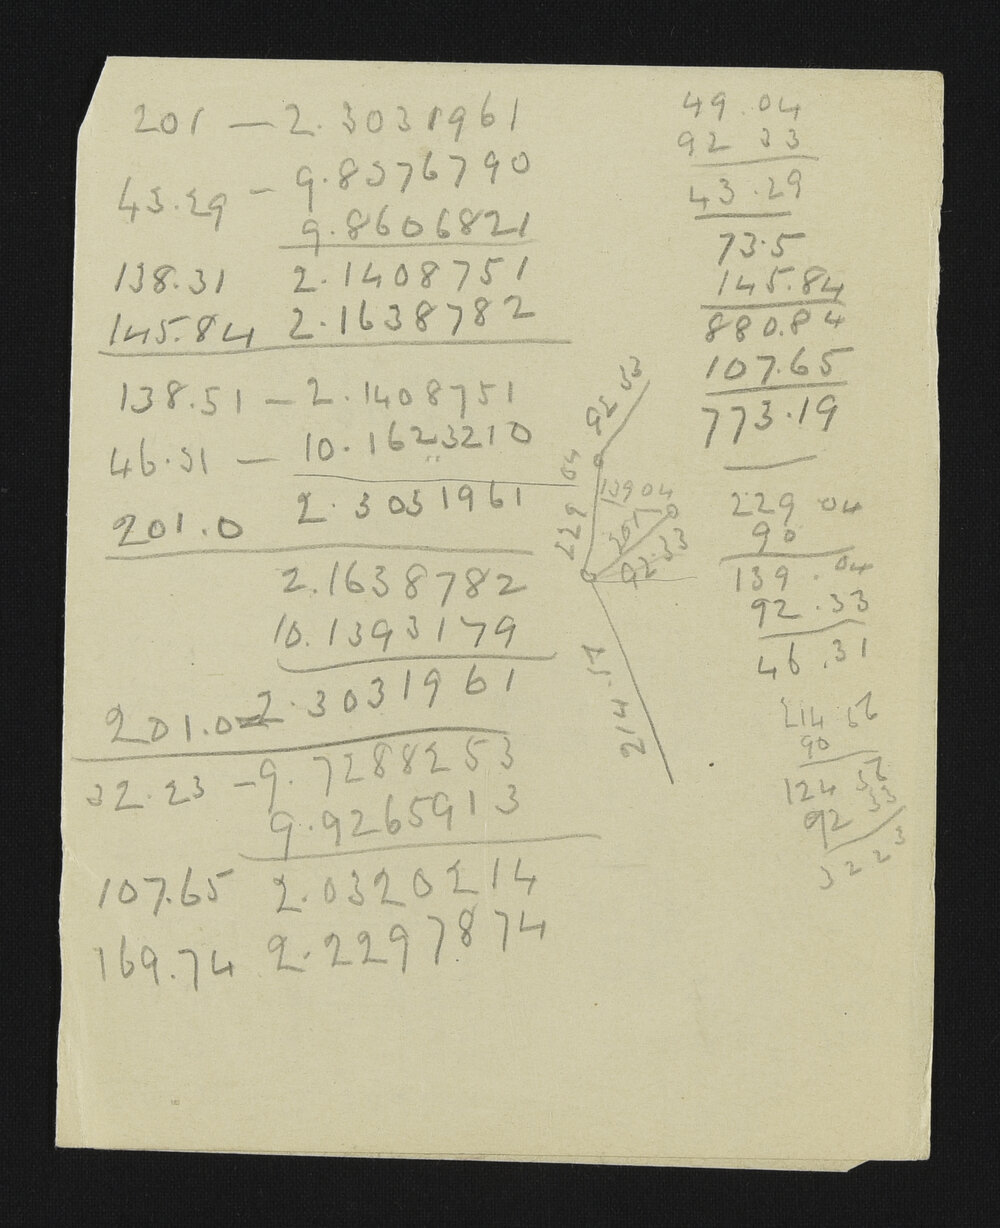 201 — 2.3031961
43.29 — 9.8376790
9.8606821
138.31 2.1408751
145.84 2.1638782
138.31 — 2.1408751
46.31 — 10.1623210
201.0 2.3031961
2.1638782
10.1393179
201.0 = 2.3031961
32.23 — 9.7288253
9.9265913
107.65 2.0320214
169.74 2.2297874
49.04
92 33
43.29
73.5
145.84
880.84
107.65
773.19
92 53
229 04
139 04
201
92.33
214.57
229 04
90
139.04
92.33
46.31
214 56
90
124 56
92 33
32 23